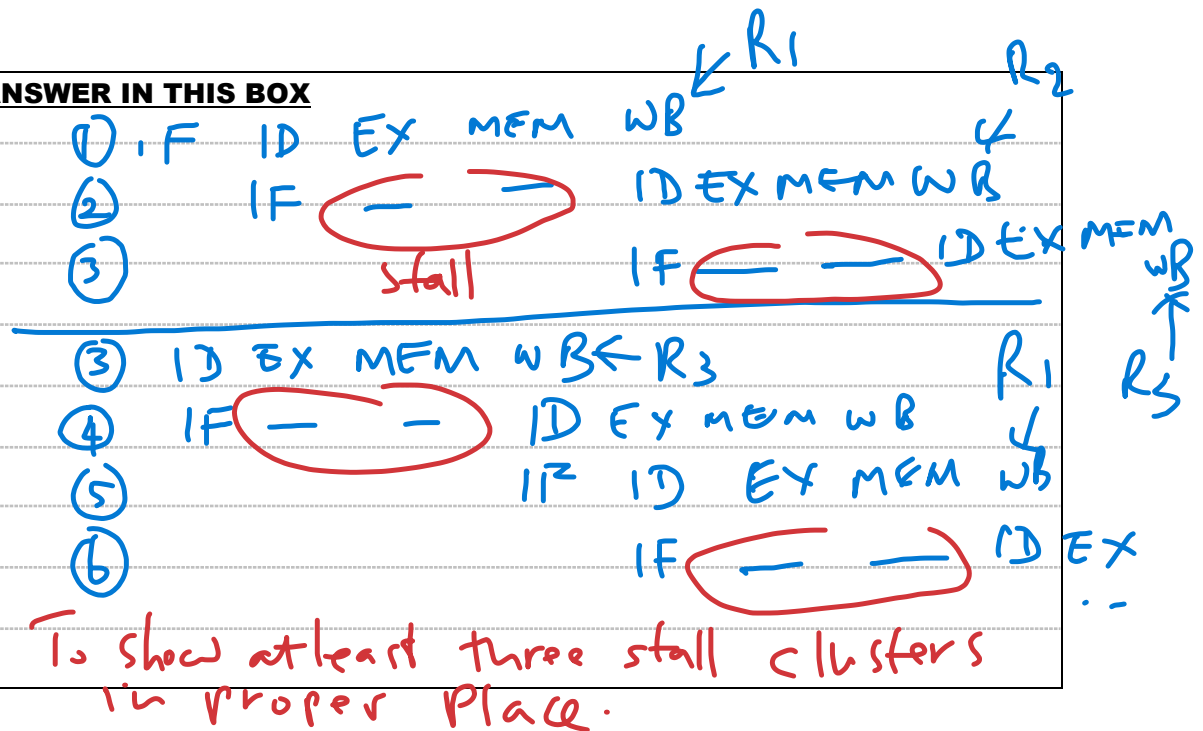 R1
R2
ANSWER IN THIS BOX
① IF ID EX MEM WB
② IF — — ID EX MEM WB
③ IF — — ID EX MEM WB
stall
③ ID EX MEM WB ← R3
R1
R3
④ IF — — ID EX MEM WB
⑤ IF ID EX MEM WB
⑥ IF — — ID EX
..
To show atleast three stall clusters
in proper place.